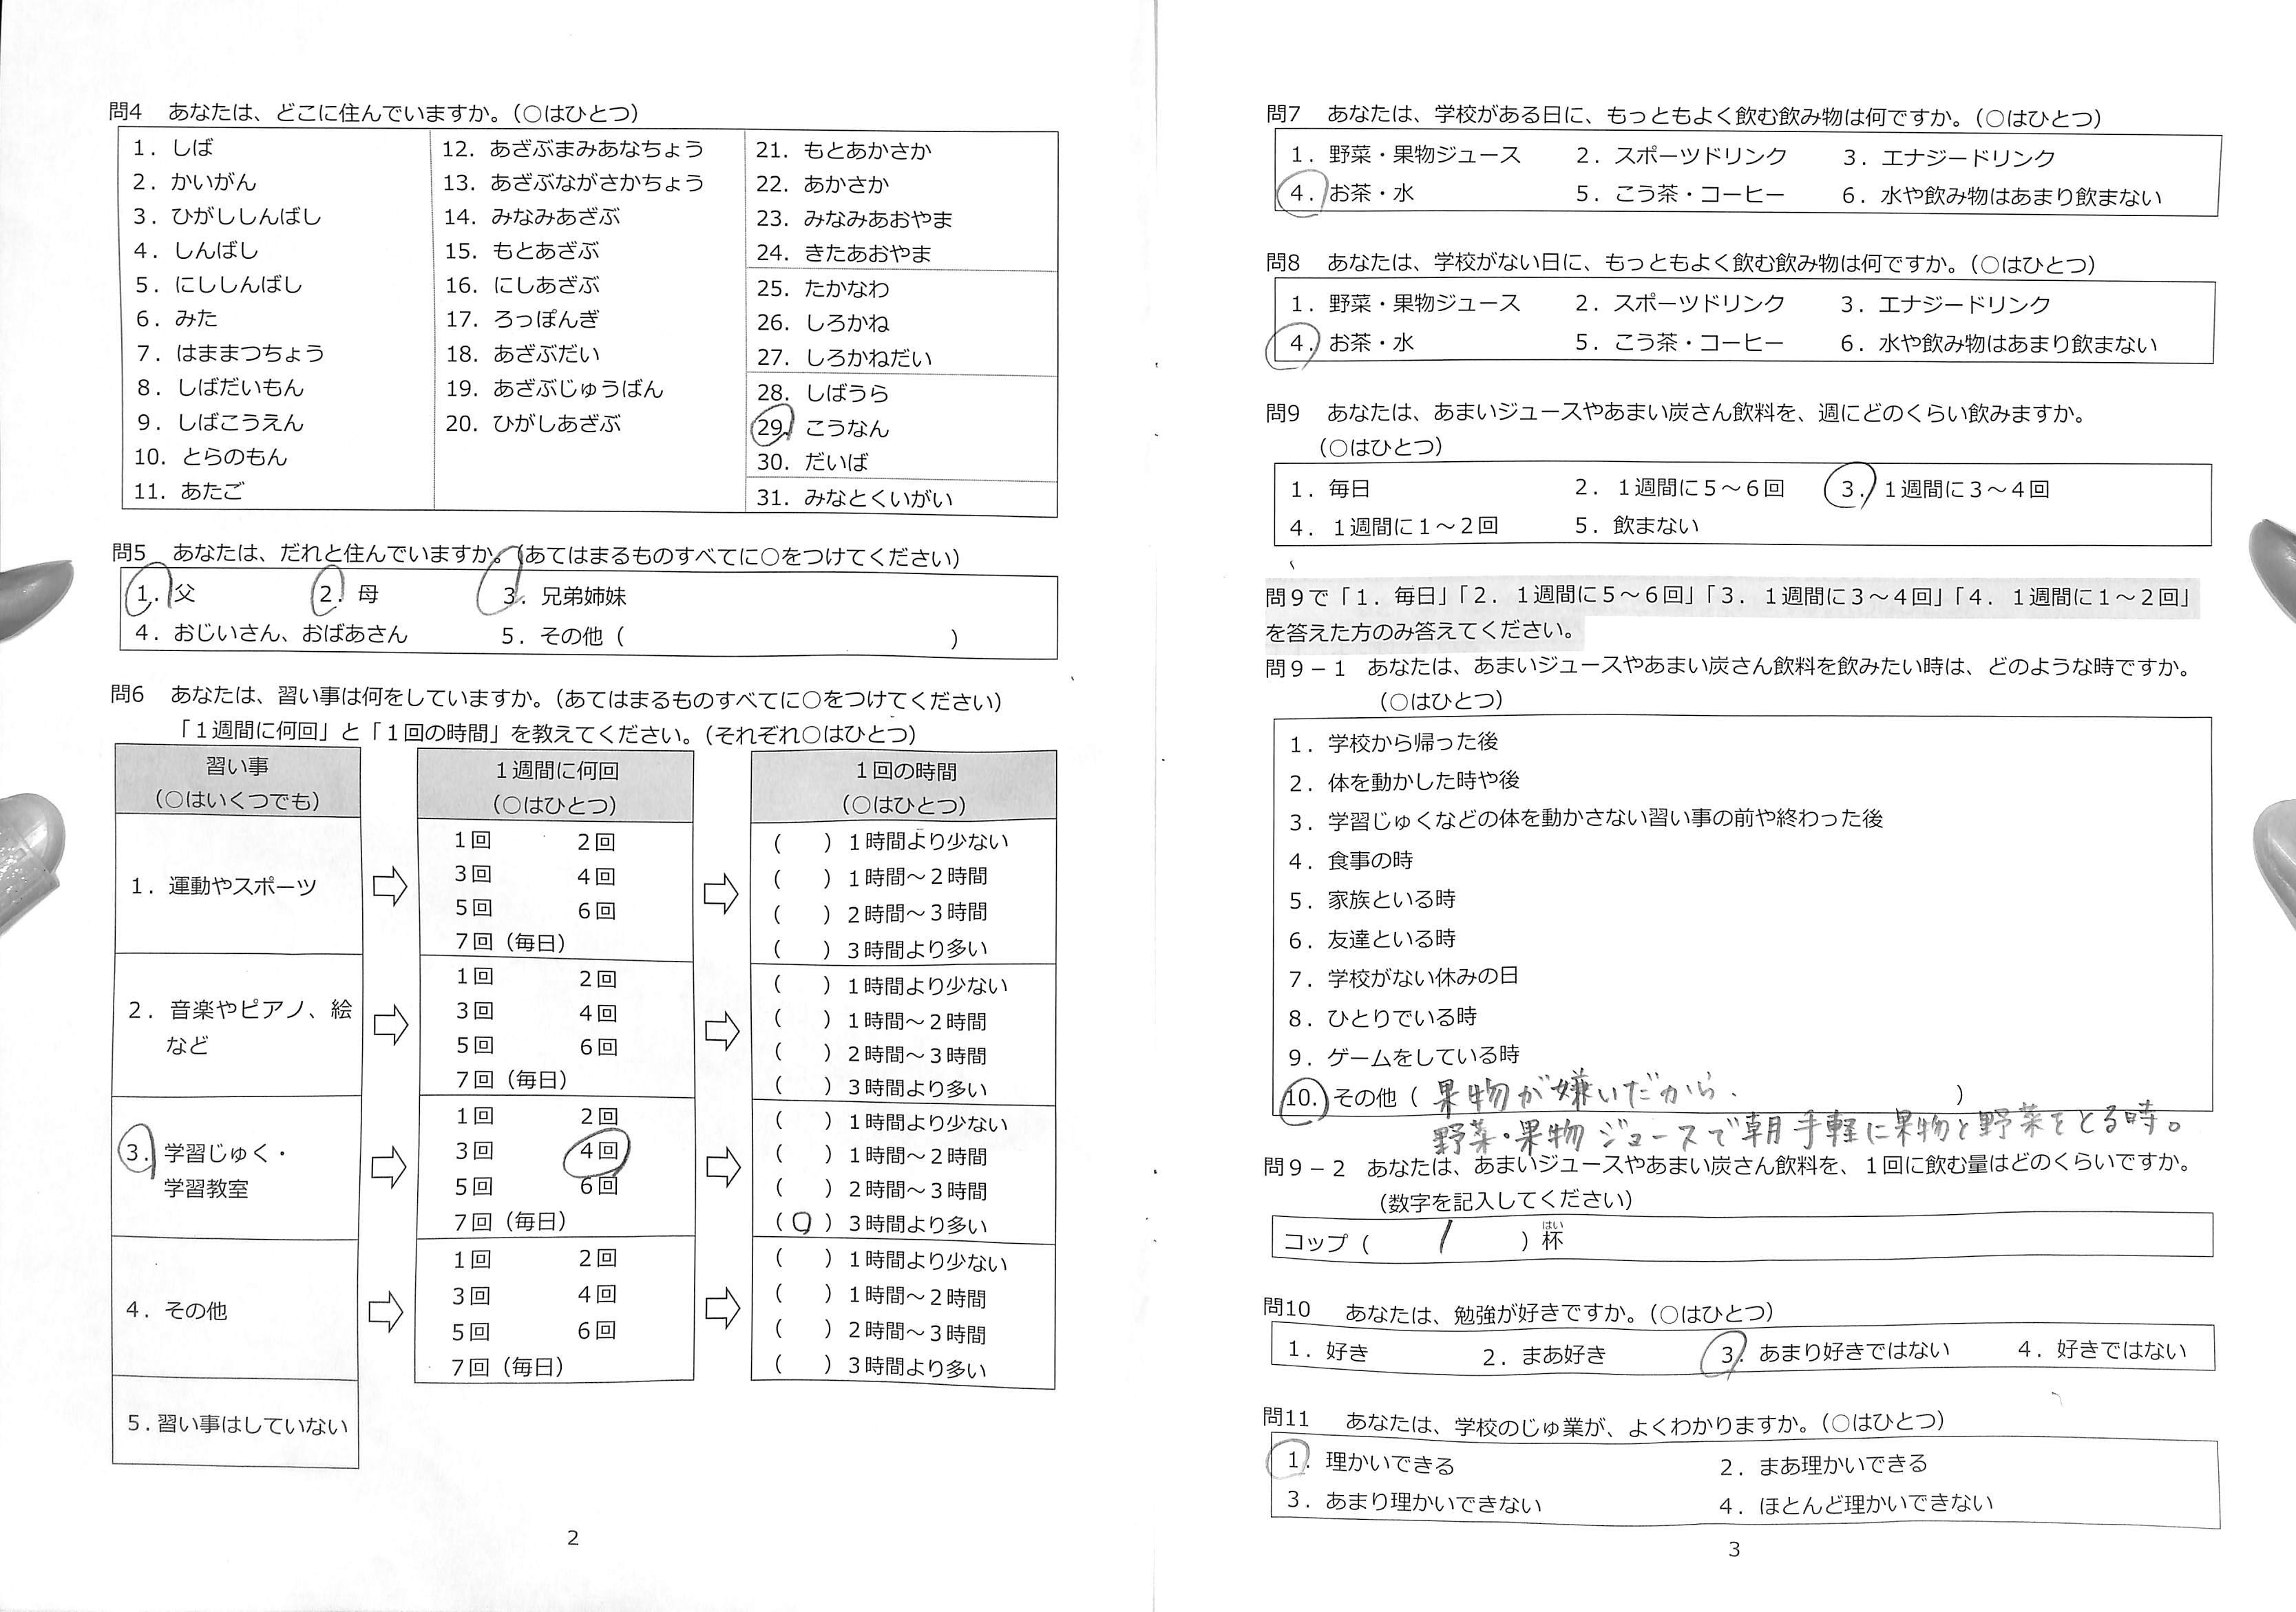 問4 あなたは、どこに住んでいますか。（○はひとつ）
1．しば
2．かいがん
3．ひがししんばし
4．しんばし
5．にししんばし
6．みた
7．はままつちょう
8．しばだいもん
9．しばこうえん
10．とらのもん
11．あたご
12．あざぶまみあなちょう
13．あざぶながさかちょう
14．みなみあざぶ
15．もとあざぶ
16．にしあざぶ
17．ろっぽんぎ
18．あざぶだい
19．あざぶじゅうばん
20．ひがしあざぶ
21．もとあかさか
22．あかさか
23．みなみあおやま
24．きたあおやま
25．たかなわ
26．しろかね
27．しろかねだい
28．しばうら
29．こうなん
30．だいば
31．みなとくいがい
問5 あなたは、だれと住んでいますか。（あてはまるものすべてに○をつけてください）
1．父 2．母 3．兄弟姉妹
4．おじいさん、おばあさん 5．その他（ ）
問6 あなたは、習い事は何をしていますか。（あてはまるものすべてに○をつけてください）
「1週間に何回」と「1回の時間」を教えてください。（それぞれ○はひとつ）
習い事
（○はいくつでも）
1週間に何回
（○はひとつ）
1回の時間
（○はひとつ）
1．運動やスポーツ
1回 2回
3回 4回
5回 6回
7回（毎日）
（ ）1時間より少ない
（ ）1時間～2時間
（ ）2時間～3時間
（ ）3時間より多い
2．音楽やピアノ、絵
など
1回 2回
3回 4回
5回 6回
7回（毎日）
（ ）1時間より少ない
（ ）1時間～2時間
（ ）2時間～3時間
（ ）3時間より多い
3．学習じゅく・
学習教室
1回 2回
3回 4回
5回 6回
7回（毎日）
（ ）1時間より少ない
（ ）1時間～2時間
（ ）2時間～3時間
（○）3時間より多い
4．その他
1回 2回
3回 4回
5回 6回
7回（毎日）
（ ）1時間より少ない
（ ）1時間～2時間
（ ）2時間～3時間
（ ）3時間より多い
5．習い事はしていない
2
問7 あなたは、学校がある日に、もっともよく飲む飲み物は何ですか。（○はひとつ）
1．野菜・果物ジュース 2．スポーツドリンク 3．エナジードリンク
4．お茶・水 5．こう茶・コーヒー 6．水や飲み物はあまり飲まない
問8 あなたは、学校がない日に、もっともよく飲む飲み物は何ですか。（○はひとつ）
1．野菜・果物ジュース 2．スポーツドリンク 3．エナジードリンク
4．お茶・水 5．こう茶・コーヒー 6．水や飲み物はあまり飲まない
問9 あなたは、あまいジュースやあまい炭さん飲料を、週にどのくらい飲みますか。
（○はひとつ）
1．毎日 2．1週間に5～6回 3．1週間に3～4回
4．1週間に1～2回 5．飲まない
問9で「1．毎日」「2．1週間に5～6回」「3．1週間に3～4回」「4．1週間に1～2回」
を答えた方のみ答えてください。
問9－1 あなたは、あまいジュースやあまい炭さん飲料を飲みたい時は、どのような時ですか。
（○はひとつ）
1．学校から帰った後
2．体を動かした時や後
3．学習じゅくなどの体を動かさない習い事の前や終わった後
4．食事の時
5．家族といる時
6．友達といる時
7．学校がない休みの日
8．ひとりでいる時
9．ゲームをしている時
10．その他（果物が嫌いだから、 ）
野菜・果物ジュースで朝手軽に果物と野菜をとる時。
問9－2 あなたは、あまいジュースやあまい炭さん飲料を、1回に飲む量はどのくらいですか。
（数字を記入してください）
はい
コップ（ 1 ）杯
問10 あなたは、勉強が好きですか。（○はひとつ）
1．好き 2．まあ好き 3．あまり好きではない 4．好きではない
問11 あなたは、学校のじゅ業が、よくわかりますか。（○はひとつ）
1．理かいできる 2．まあ理かいできる
3．あまり理かいできない 4．ほとんど理かいできない
3